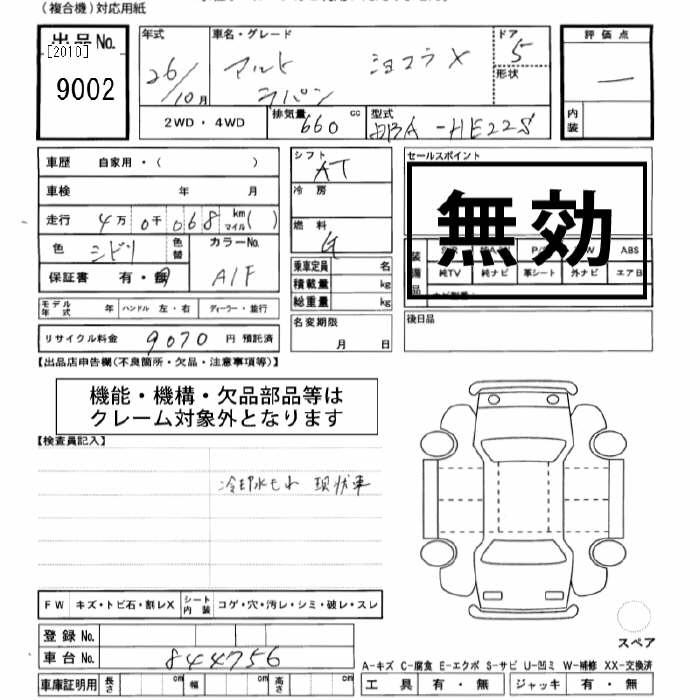 (複合機)対応用紙
出品No.
[2010]
9002
年式
26/10月
車名・グレード
アルト ラパン
ショコラX
ドア
5
形状
評価点
―
内装
2WD・4WD
排気量 660 cc
型式 DBA-HE22S
車歴 自家用・( )
車検 年 月
走行 4万0千068 km マイル( )
色 ミドリ 色替 カラーNo. A1F
保証書 有・無
モデル年式 年 ハンドル 左・右 ディーラー・並行
リサイクル料金 9070 円 預託済
シフト AT
冷房
燃料 ガ
乗車定員 名
積載量 kg
総重量 kg
名変期限
月 日
セールスポイント
無効
ABS
純TV 純ナビ 革シート 外ナビ エアB
後日品
【出品店申告欄(不良箇所・欠品・注意事項等)】
機能・機構・欠品部品等は
クレーム対象外となります
【検査員記入】
冷却水もれ 現状車
FW キズ・トビ石・割レX シート内装 コゲ・穴・汚レ・シミ・破レ・スレ
登録No.
車台No. 844756
車庫証明用 長さ cm 幅 cm 高さ cm
スペア
A-キズ C-腐食 E-エクボ S-サビ U-凹ミ W-補修 XX-交換済
工具 有・無 ジャッキ 有・無